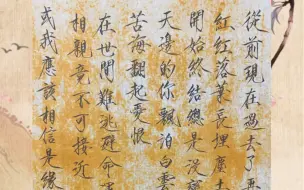 從前現在過去了再
紅紅落葉長埋塵土
開始終結總是沒變
天邊的你飄泊白雲
苦海翻起愛恨
在世間難逃避命運
相親竟不可接近
或我應該相信是緣